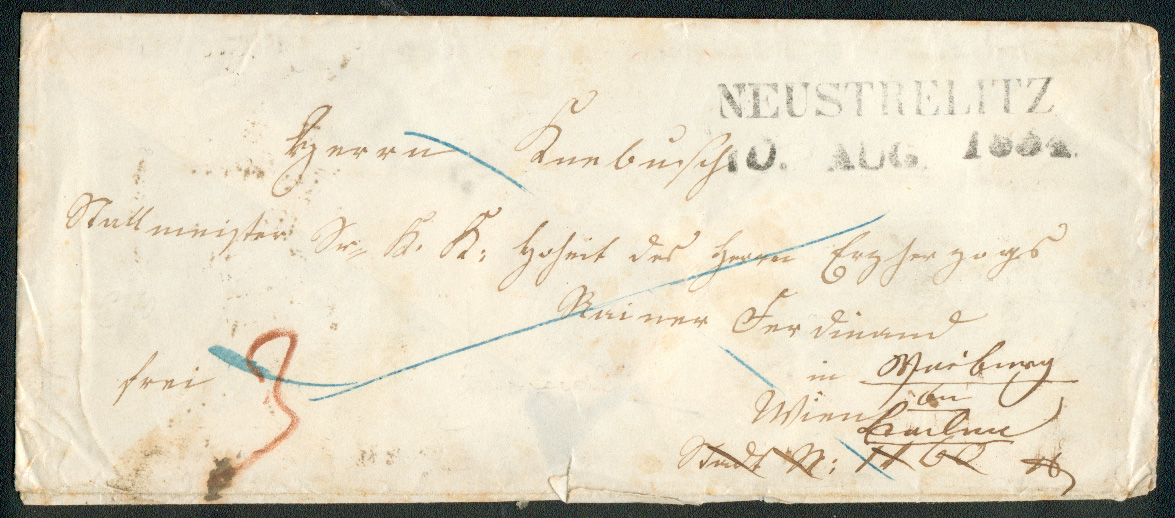 NEUSTRELITZ
10. AUG. 1854.
Herrn Knebusch
Stallmeister Sr. K. K. Hoheit des Herrn Erzherzogs
Rainer Ferdinand
frei 3
in Weilburg
bei
Wien Baden
Stadt N: 1160